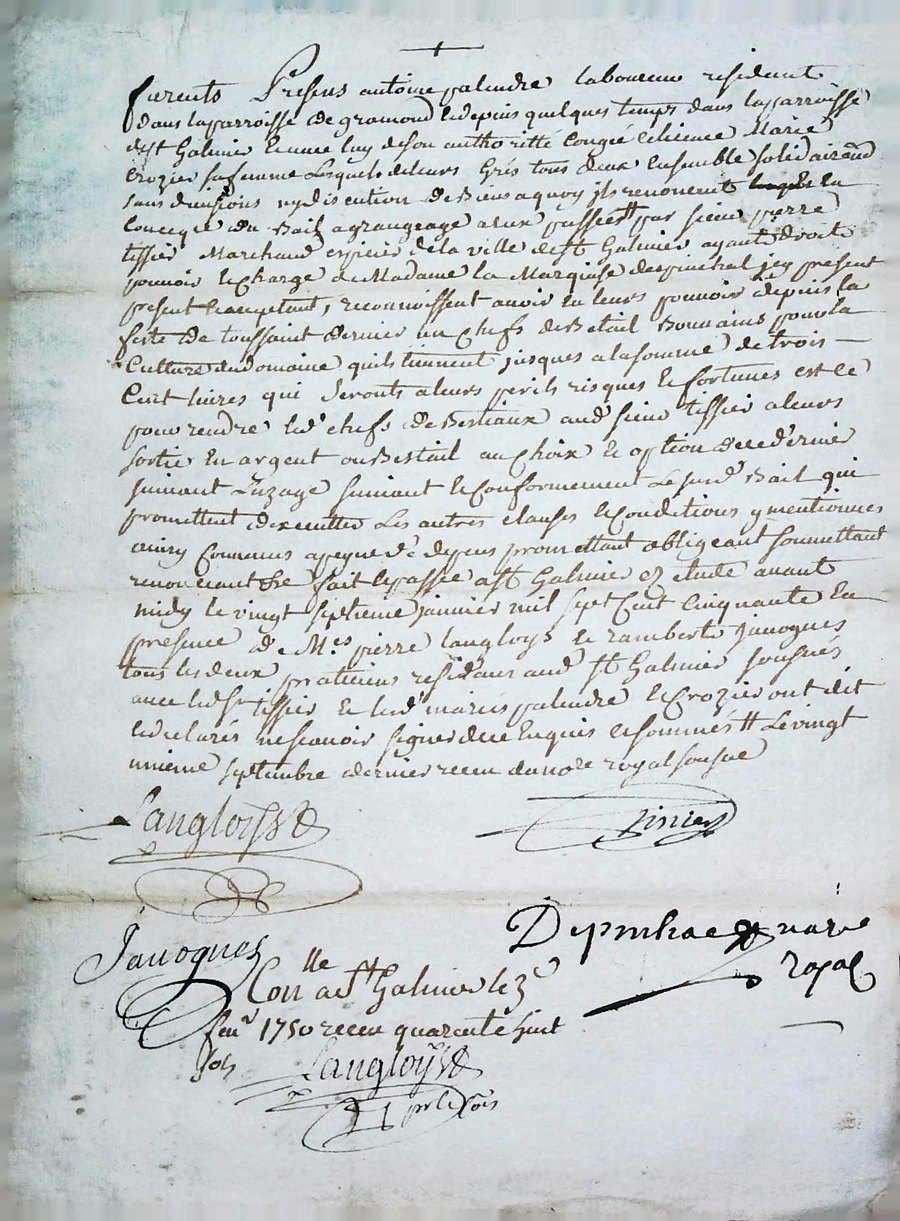 furents Presens antoine palendre laboureur residant
dans laparroisse de gramond & depuis quelques temps dans laparroisse
dest Galmier & avec luy deson authoritté Congée & licence Marie
Crozier sa femme Lesquels deleurs Grés tous deux Ensemble solidairemt
sans divisions ny discution de Biens aquoy jls renoncent En
Conceqce du Bail agrangeage a eux passé par sieur pierre
tissier Marchand espicier de la ville de st Galmier ayant droit
pouvoir & Charge de Madame la Marquise despinchal jcy present
present & acceptant, reconnoissent avoir En leurs pouvoir depuis la
feste de toussaint dernier un Chefs de Betail Bonnains pour la
Culture du domaine quils tiennent jusques a la somme de trois
Cent livres qui seronts aleurs perils risques & fortunes est ce
pour rendre led chefs de Bestiaux aud sieur tissier aleurs
sortie En argent ou Bestail au Choix & option de ce dernier
suivant Luzage suivant & Conformement Le susd Bail qui
promettent dexecutter Les autres clauses & Conditions y mentionnes
ainsy Convenus apeyne de depens promettant obligeant soumettant
renonceant &c fait & passé a st Galmier ez etude avant
midy le vingt septieme janvier mil sept Cent Cinquante En
presence de Mes pierre Langloys & ramberte Javogues
tous les deux praticiens residans aud st Galmier sousnés
avec led sr tissier & lesd mariés palendre & Crozier ont dit
& declarés ne scavoir signer de ce Enquis & sommés Le vingt
unieme septembre dernier receu du nore royal sousne
Langloys
Tissier
Javogues
Depinhac notaire
royal
Conlle a st Galmier le 3e
fevr 1750 receu quarente huit
sols
Langloys